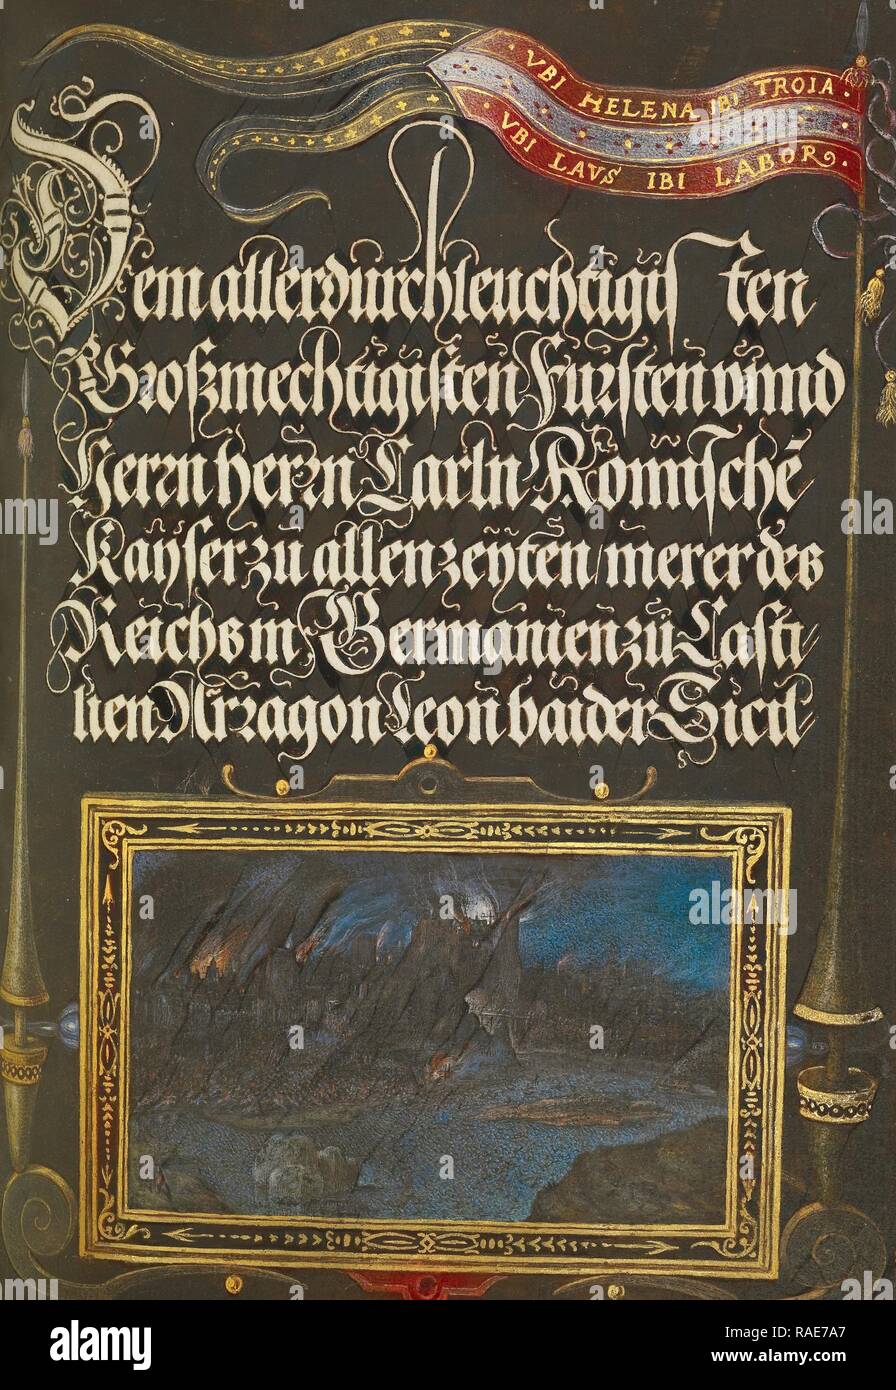 VBI HELENA IBI TROIA
VBI LAVS IBI LABOR
Dem allerdurchleuchtigisten
Großmechtigisten Fursten vnnd
Herrn herrn Carln Römischē
Kaÿser zu allen zeÿten / merer des
Reichs in Germanien zu Casti/
lien Arragon Leon baider Sicil
a
alamy stock photo
RAE7A7
www.alamy.com